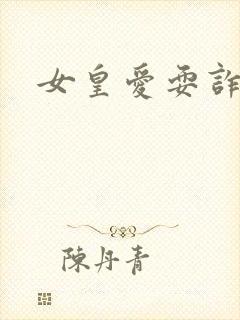 女皇愛耍詐
陳丹青